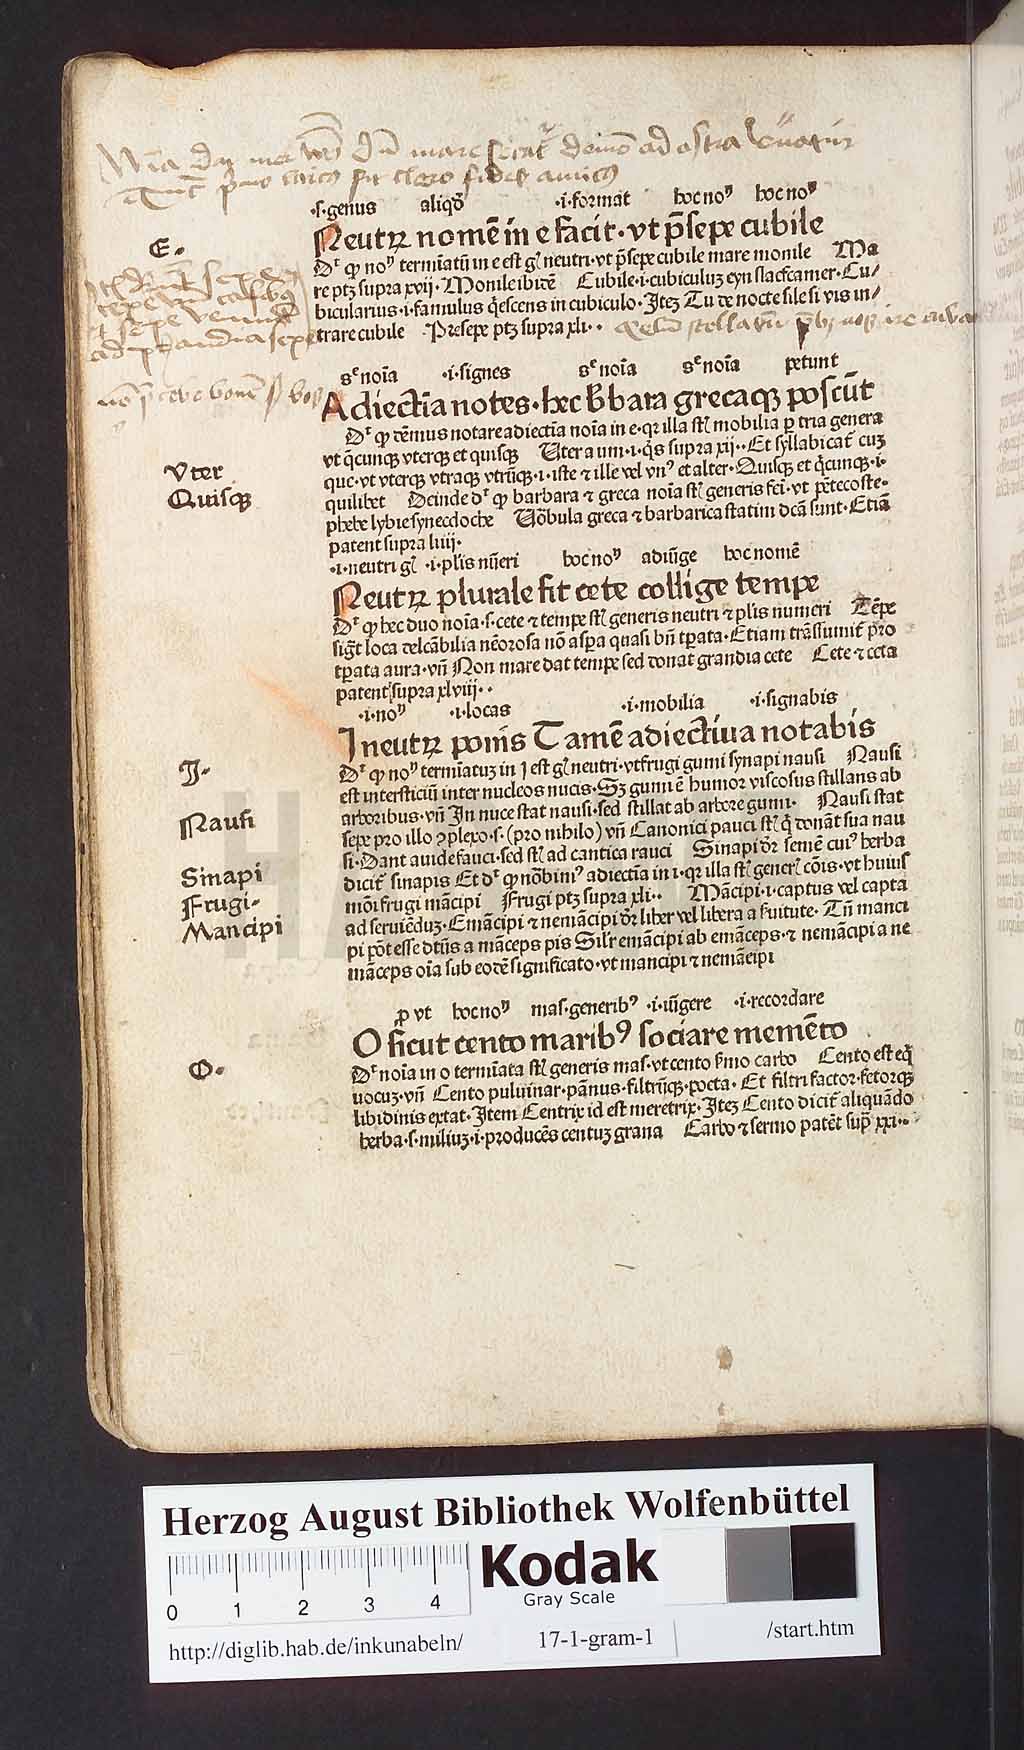 dū mare ad astra
fit clero fides amicus
·s·genus aliqđ ·i·format hoc noᵐ hoc noᵐ
E·
Neutꝝ nomē in e facit·vt p̄sepe cubile
Dʳ ꝙ noᵐ termīatū in e est gᷓl neutri·vt p̄sepe cubile mare monile Ma
re ptꝫ supra xvij·Monile ibidē Cubile·i·cubiculuꝫ eyn slaefcamer·Cu/
bicularius·i·famulus q̄escens in cubiculo·Iteꝫ Tu de nocte sile si vis in/
trare cubile Presepe ptꝫ supra xli··
sᵉ noīa ·i·signes sᵉ noīa sᵉ noīa petunt
Adiectīa notes·hec b̄bara grecaqꝫ poscūt
Dʳ ꝙ dēmus notare adiectīa noīa in e·qꝛ illa st̄ mobilia ꝑ tria genera
vt q̄cunqꝫ vterqꝫ et quisqꝫ Uter a um·i·q̄s supra xij··Et syllabicat̄ cuꝫ
Vter
que·vt vterqꝫ vtraqꝫ vtrūqꝫ·i·iste ⁊ ille vel vnꝰ et alter·Quisqꝫ et q̄cunqꝫ·i·
Quisqꝫ
quilibet Deinde dʳ ꝙ barbara ⁊ greca noīa st̄ generis fei·vt pētecoste·
phebe lybie synecdoche Uōbula greca ⁊ barbarica statim dc̄a sunt·Etiā
patent supra liiij·
·i·neutri gᷓl ·i·pl̄is nūeri hoc noᵐ adiūge hoc nomē
Neutꝝ plurale fit cete collige tempe
Dʳ ꝙ hec duo noīa·s·cete ⁊ tempe st̄ generis neutri ⁊ pl̄is numeri Tēpe
sigt̄ loca delcābilia nēorosa nō aspa quasi bn̄ tpata·Etiam trāssumit̄ pro
tꝑata aura·vn̄ Non mare dat tempe sed donat grandia cete Cete ⁊ ceta
patent supra xlviij··
·i·noᵐ ·i·locas ·i·mobilia ·i·signabis
I neutꝝ ponis Tamē adiectiua notabis
I·
Dʳ ꝙ noᵐ termīatuꝫ in i est gᷓl neutri·vt frugi gumi synapi nausi Nausi
est intersticiū inter nucleos nucis·Sꝫ gumi ē humor viscosus stillans ab
Nausi
arboribus·vn̄ In nuce stat nausi·sed stillat ab arbore gumi· Nausi stat
sepe pro illo ꝯplexo·s·(pro nihilo) vn̄ Canonici pauci st̄ q̄ donāt sua nau
si·Dant auide fauci·sed st̄ ad cantica rauci Sinapi dr̄ semē cuiꝰ herba
Sinapi
dicit̄ sinapis Et dʳ ꝙ nōbimꝰ adiectīa in i·qꝛ illa st̄ generꝭ cōis·vt huius
Frugi·
mōi frugi mācipi Frugi ptꝫ supra xli·· Mācipi·i·captus vel capta
Mancipi
ad seruiēduꝫ·Emācipi ⁊ nemācipi dr̄ liber vel libera a ẜuitute·Tn̄ manci
pi pōt esse dt̄us a māceps pis Silr̄ emācipi ab emāceps·⁊ nemācipi a ne
māceps oīa sub eodē significato·vt mancipi ⁊ nemācipi
ꝓ vt hoc noᵐ mas·generibꝰ ·i·iūgere ·i·recordare
O sicut cento maribꝰ sociare memēto
O·
Dʳ noīa in o termīata st̄ generis mas·vt cento ẜmo carbo Cento est eq̄
uocuꝫ·vn̄ Cento puluinar·pānus·filtrūqꝫ·poeta· Et filtri factor·fetorqꝫ
libidinis extat·Item Centrix id est meretrix·Iteꝫ Cento dicit̄ aliquādo
herba·s·miliuꝫ·i·producēs centuꝫ grana Carbo ⁊ sermo patēt sup̄ xxi··
Herzog August Bibliothek Wolfenbüttel
Kodak
Gray Scale
0 1 2 3 4
http://diglib.hab.de/inkunabeln/ 17-1-gram-1 /start.htm
HAB